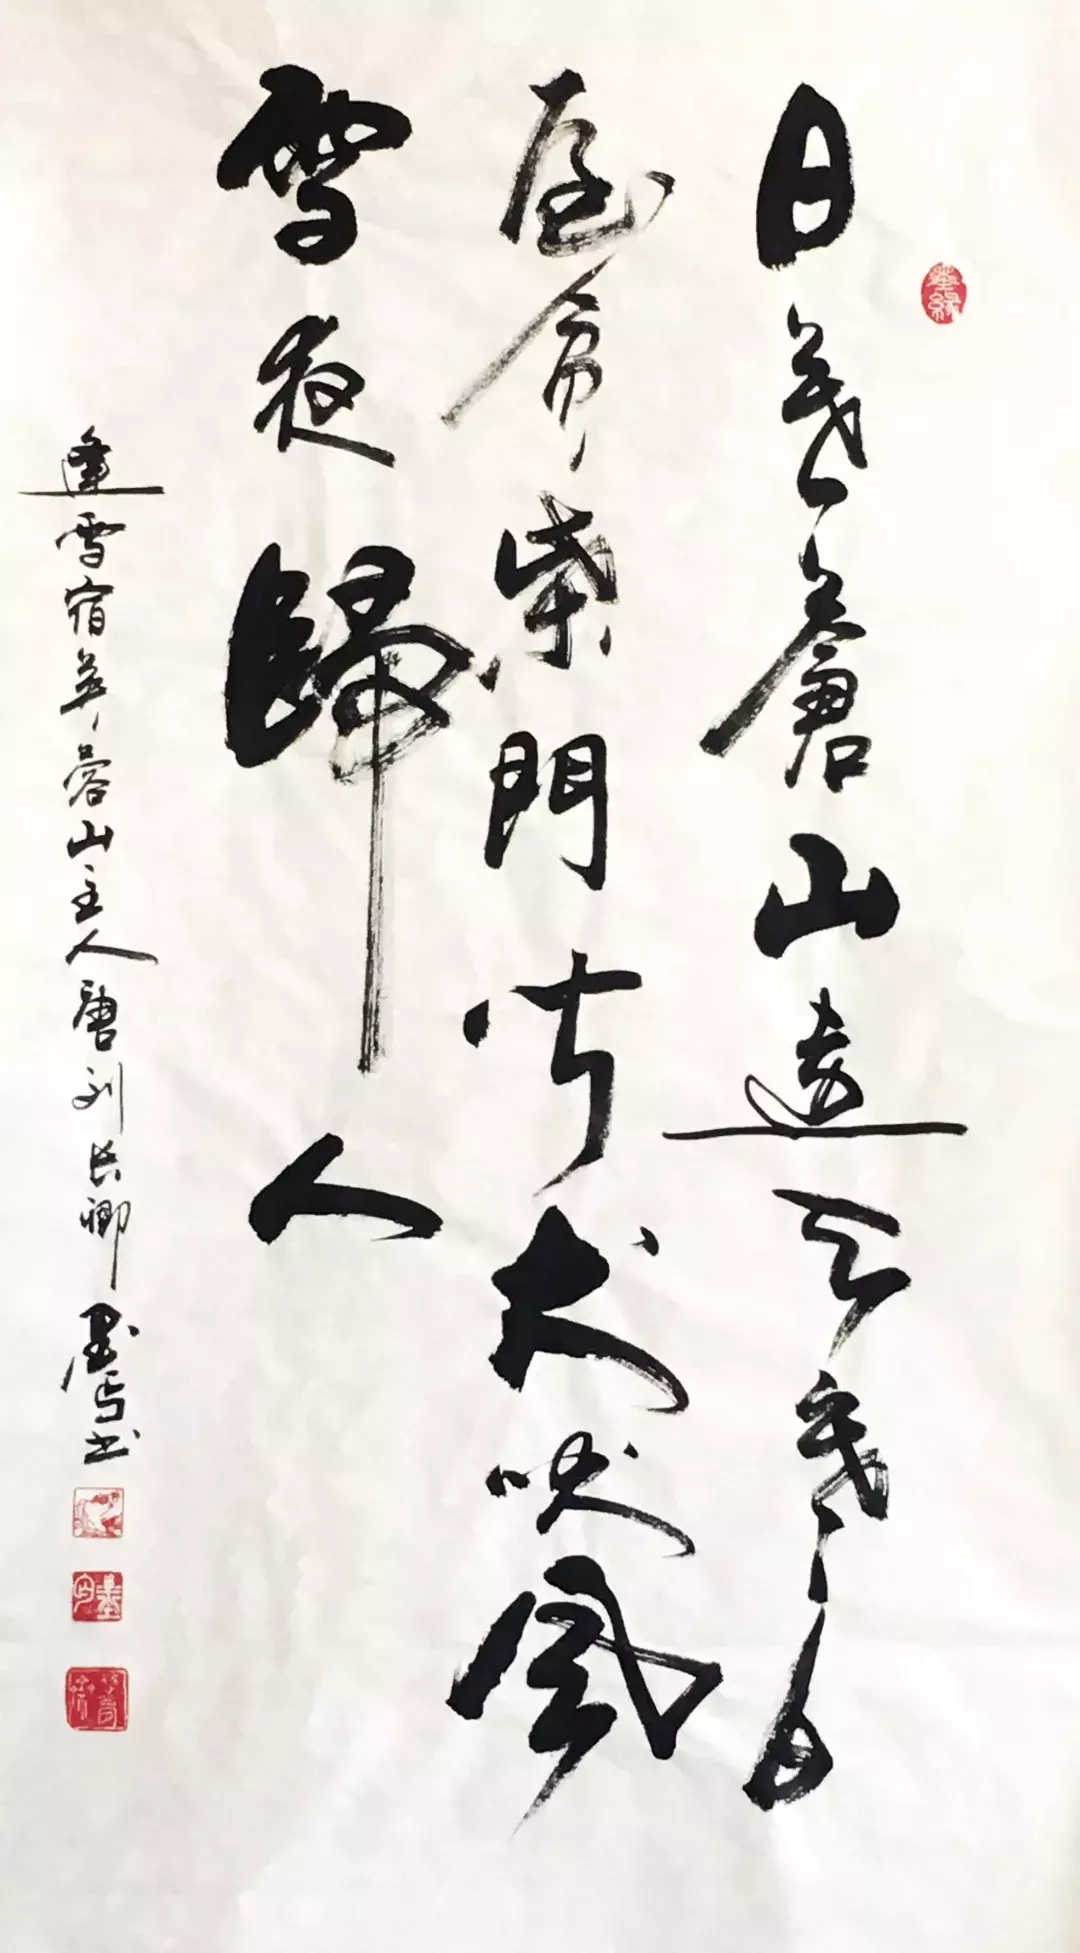 墨緣
日暮蒼山遠天寒白
屋貧柴門聞犬吠風
雪夜歸人
逢雪宿芙蓉山主人唐刘長卿墨书